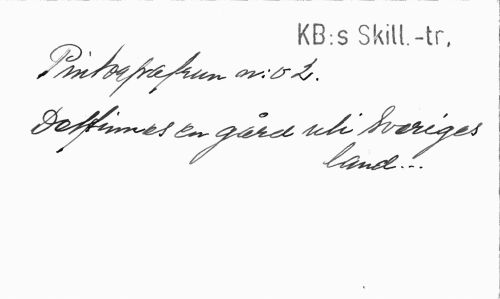 KB:s Skill.-tr,
Pintorpafrun n:o 2.
Det finnes en gård uti Sveriges
land...